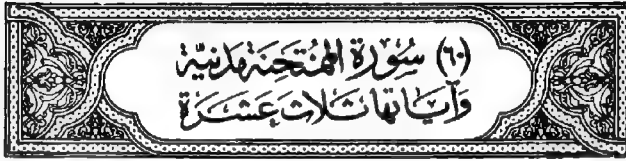 (٦٠) سُورَة المُمْتَحنَة مَدَنيَّة
وَآيَاتهَا ثَلَاثَ عَشَرَة